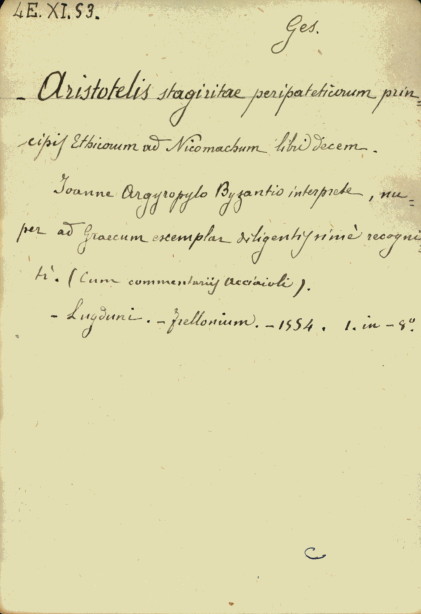 4E.XI.53.
Ges.
- Aristotelis stagiritae peripateticorum prin-
cipis Ethicorum ad Nicomachum libri decem.
Ioanne Argyropylo Byzantio interprete, nu=
per ad Graecum exemplar diligentissimè recogni
ti. (Cum commentariis Acciaioli).
- Lugduni. - Frellonium. - 1554. 1. in - 8º.
C